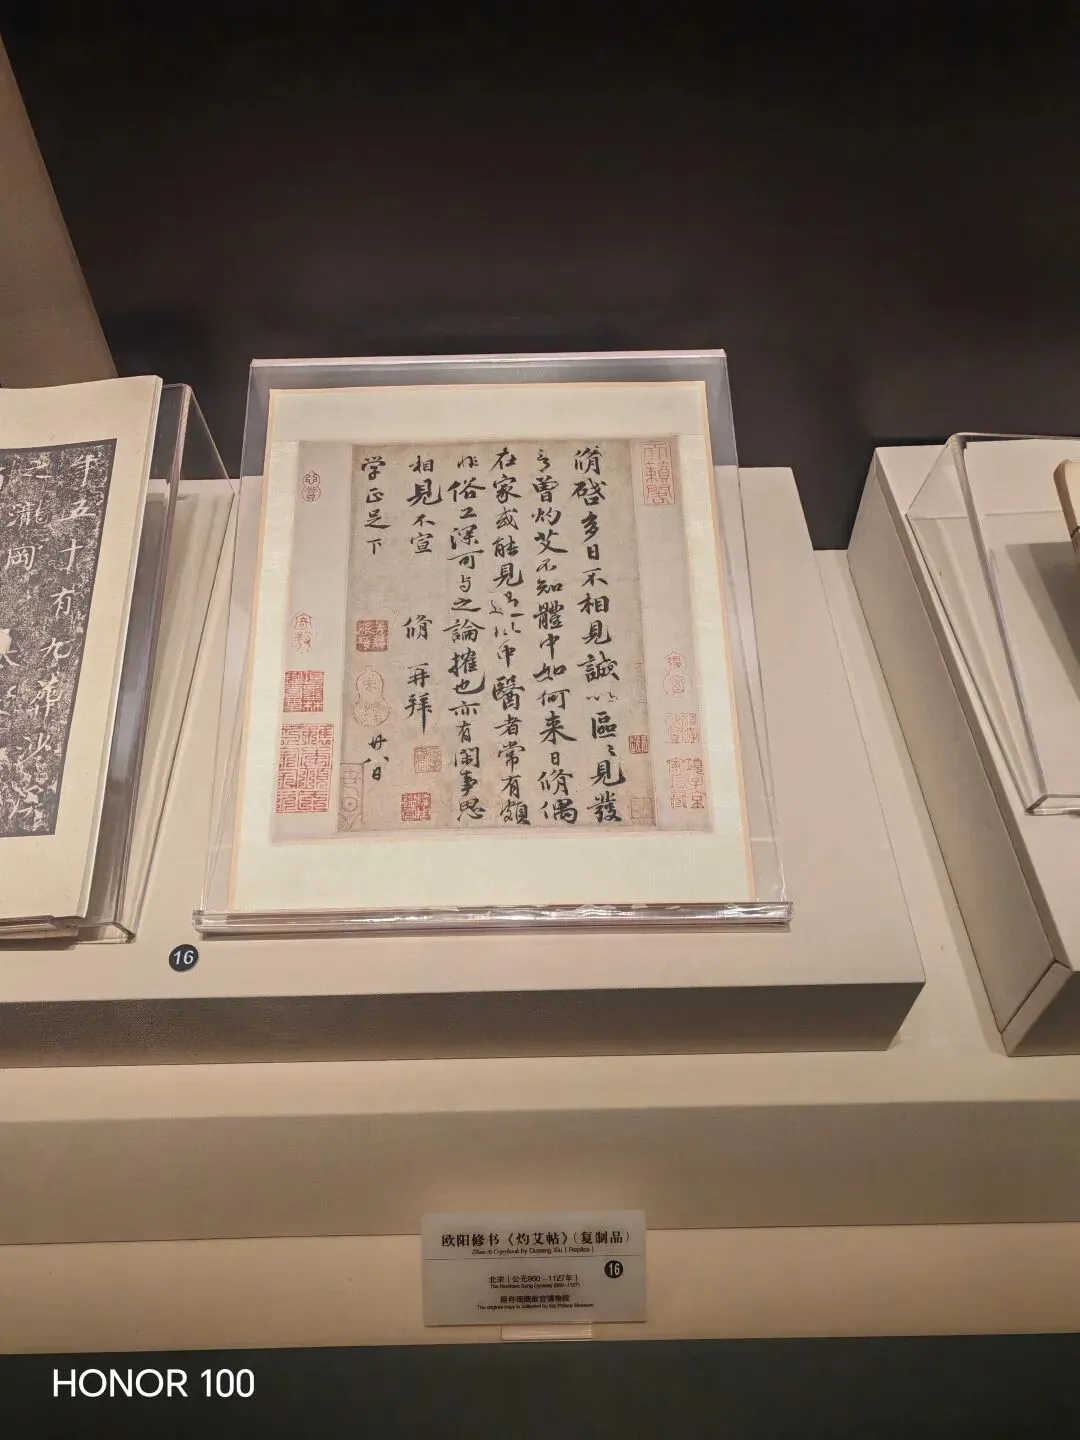 脩啓多日不相見誠以區區見發
言曾灼艾不知體中如何来日脩偶
在家或能見過此中醫者常有頗
非俗工深可与之論搉也亦有閑事思
相見不宣 脩再拜
学正足下 廿八日
天籟閣
年五十有九葬沙溪
之瀧岡
16
欧阳修书《灼艾帖》（复制品）
Zhuo Ai Copybook by Ouyang Xiu ( Replica )
16
北宋（公元960－1127年）
The Northern Song Dynasty (960-1127)
原件现藏故宫博物院
The original copy is collected by the Palace Museum
HONOR 100